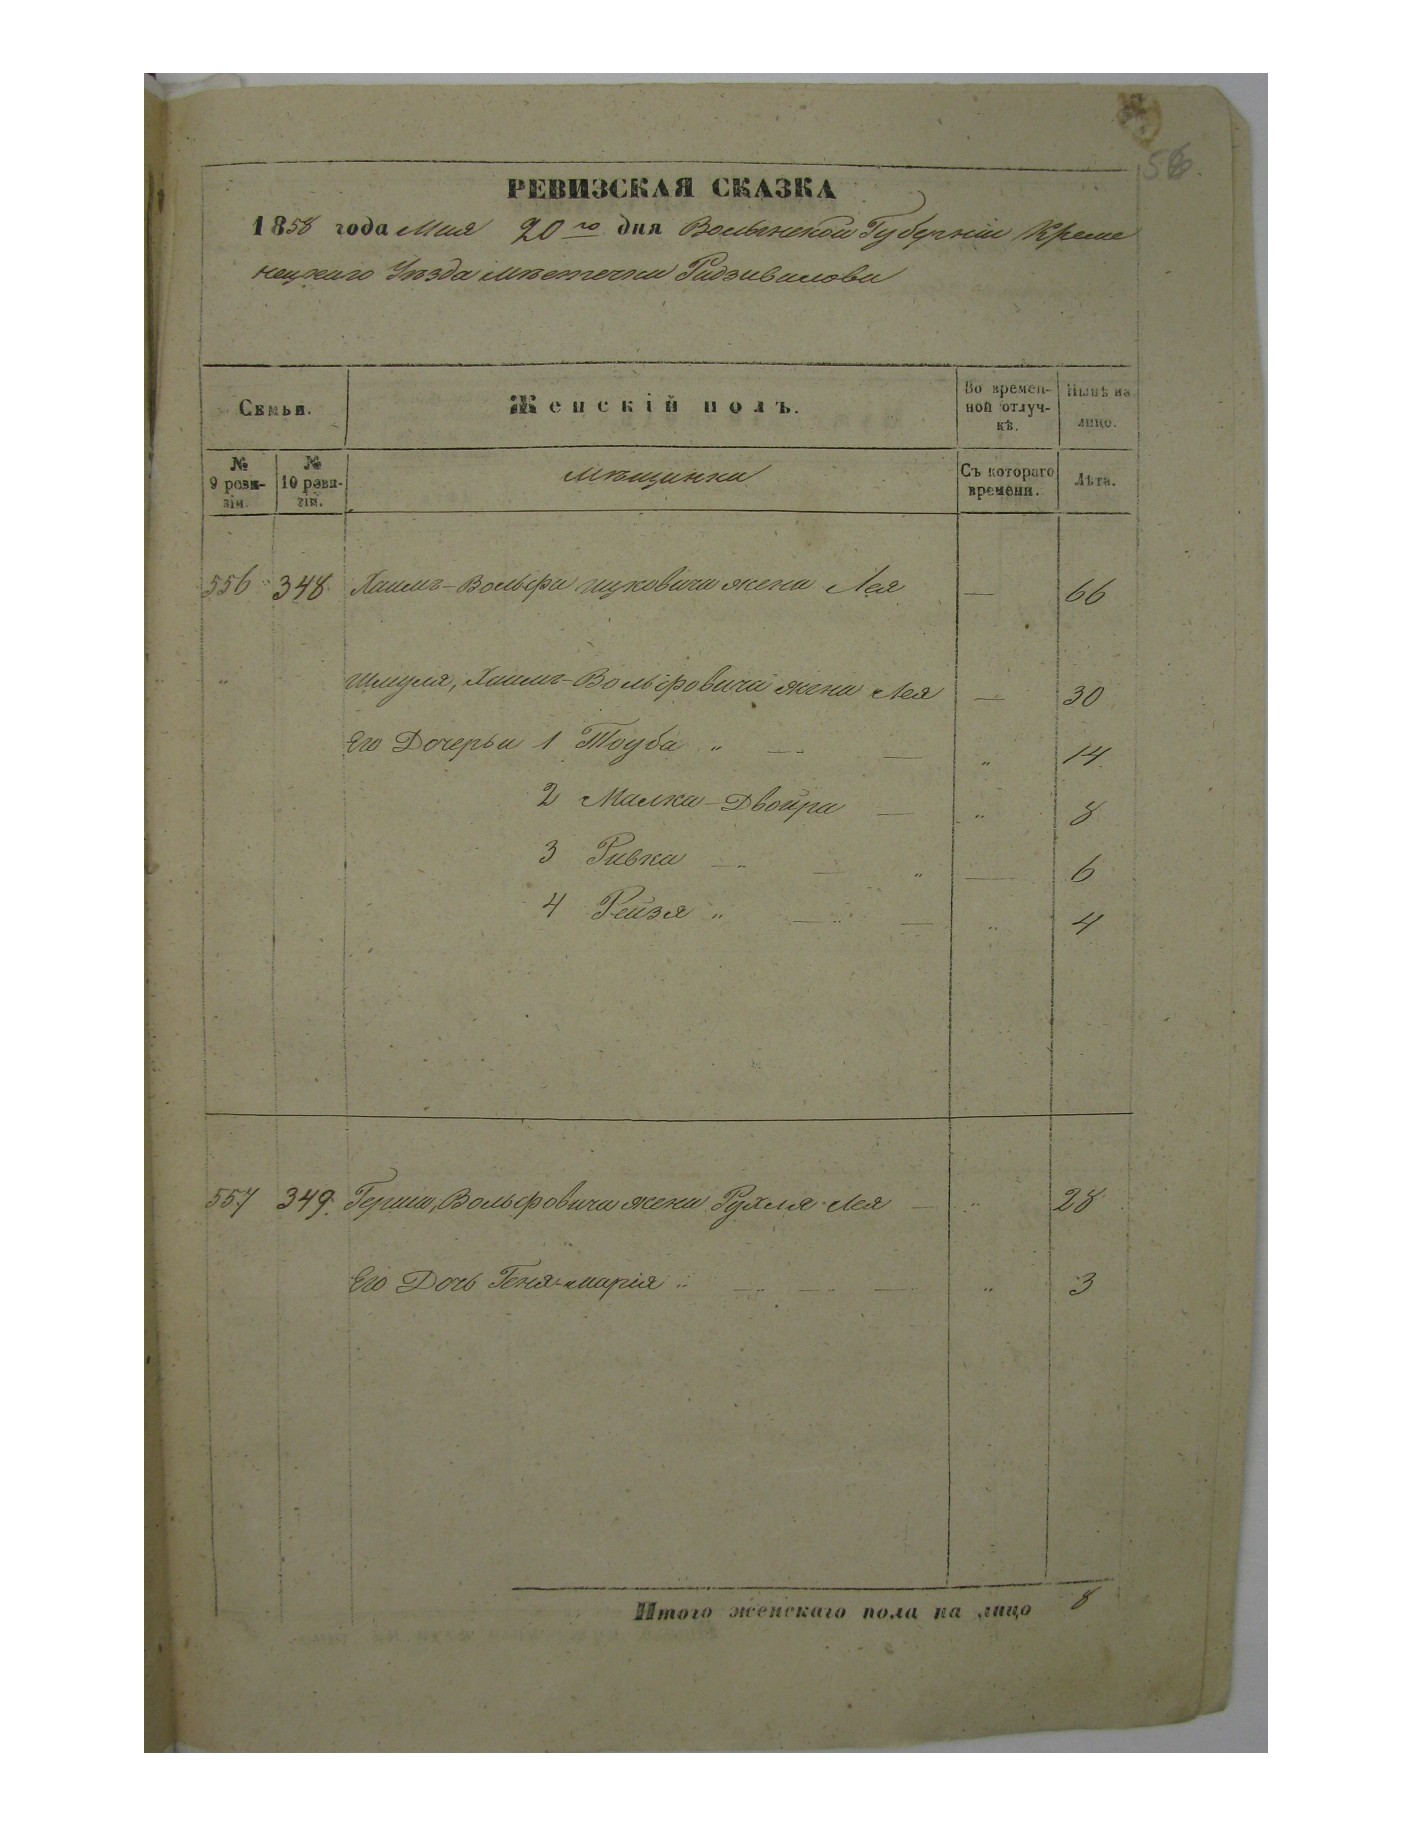 56.
РЕВИЗСКАЯ СКАЗКА
1858 года Мая 20го дня Волынской Губерніи Креме
нецкаго Уѣзда мѣстечка Радзивилова
Семьи.
Женскій полъ.
Во времен-
ной отлуч-
кѣ.
Нынѣ на
лицо.
№
9 реви-
зіи.
№
10 реви-
зіи.
мѣщанки
Съ котораго
времени.
Лѣта.
556 348 Хаимъ-Вольфа жена Лея — 66
" Шмуля, Хаимъ-Вольфовича жена Лея — 30
Его Дочерьи 1 Тоуба " — — " 14
2 Малка-Двойра — " 8
3 Ривка — — " — 6
4 Рейзя " — — " 4
557 349. Герша, Вольфовича жена Рухля-Лея — " 28
Его Дочь Геня-марія " — — — " 3
Итого женскаго пола на лицо 8